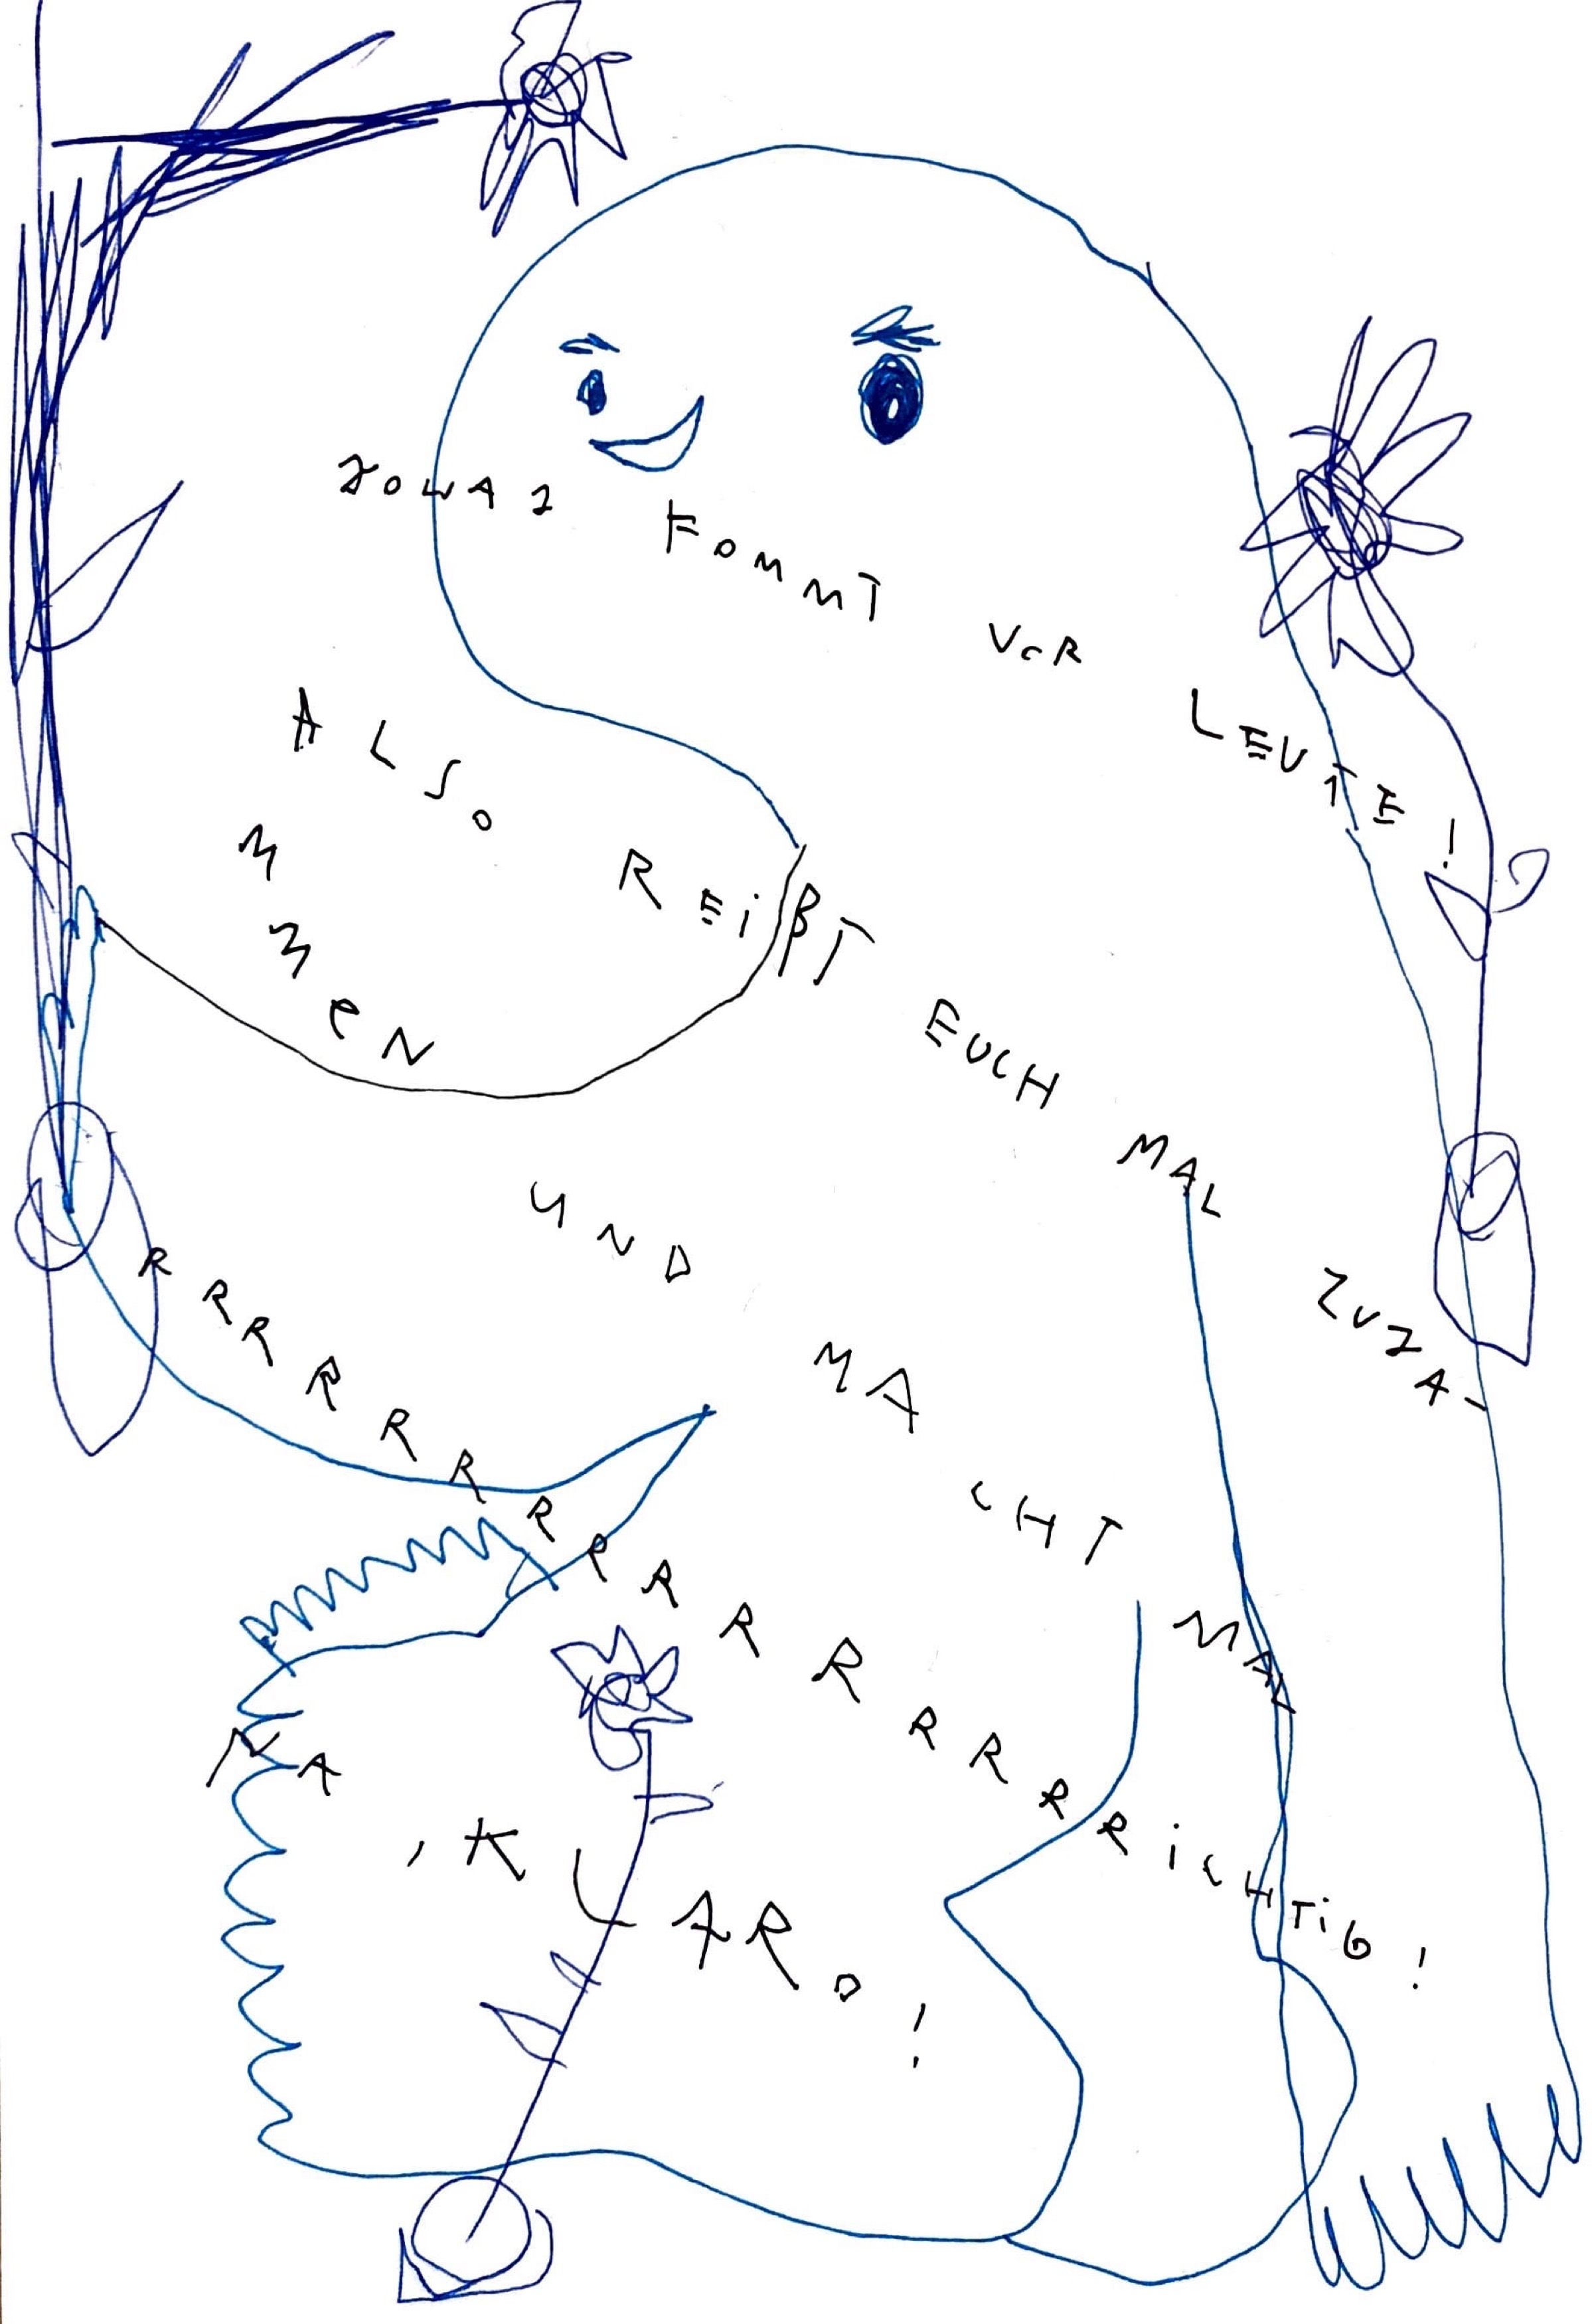 SOWAS FOMMT VOR LEUTE!
ALSO REißT EUCH MAL ZUSA-
MMeN UND MACHT MAL
RRRRRRRRRRRRRRRiCHTiG!
NA, KLARO!